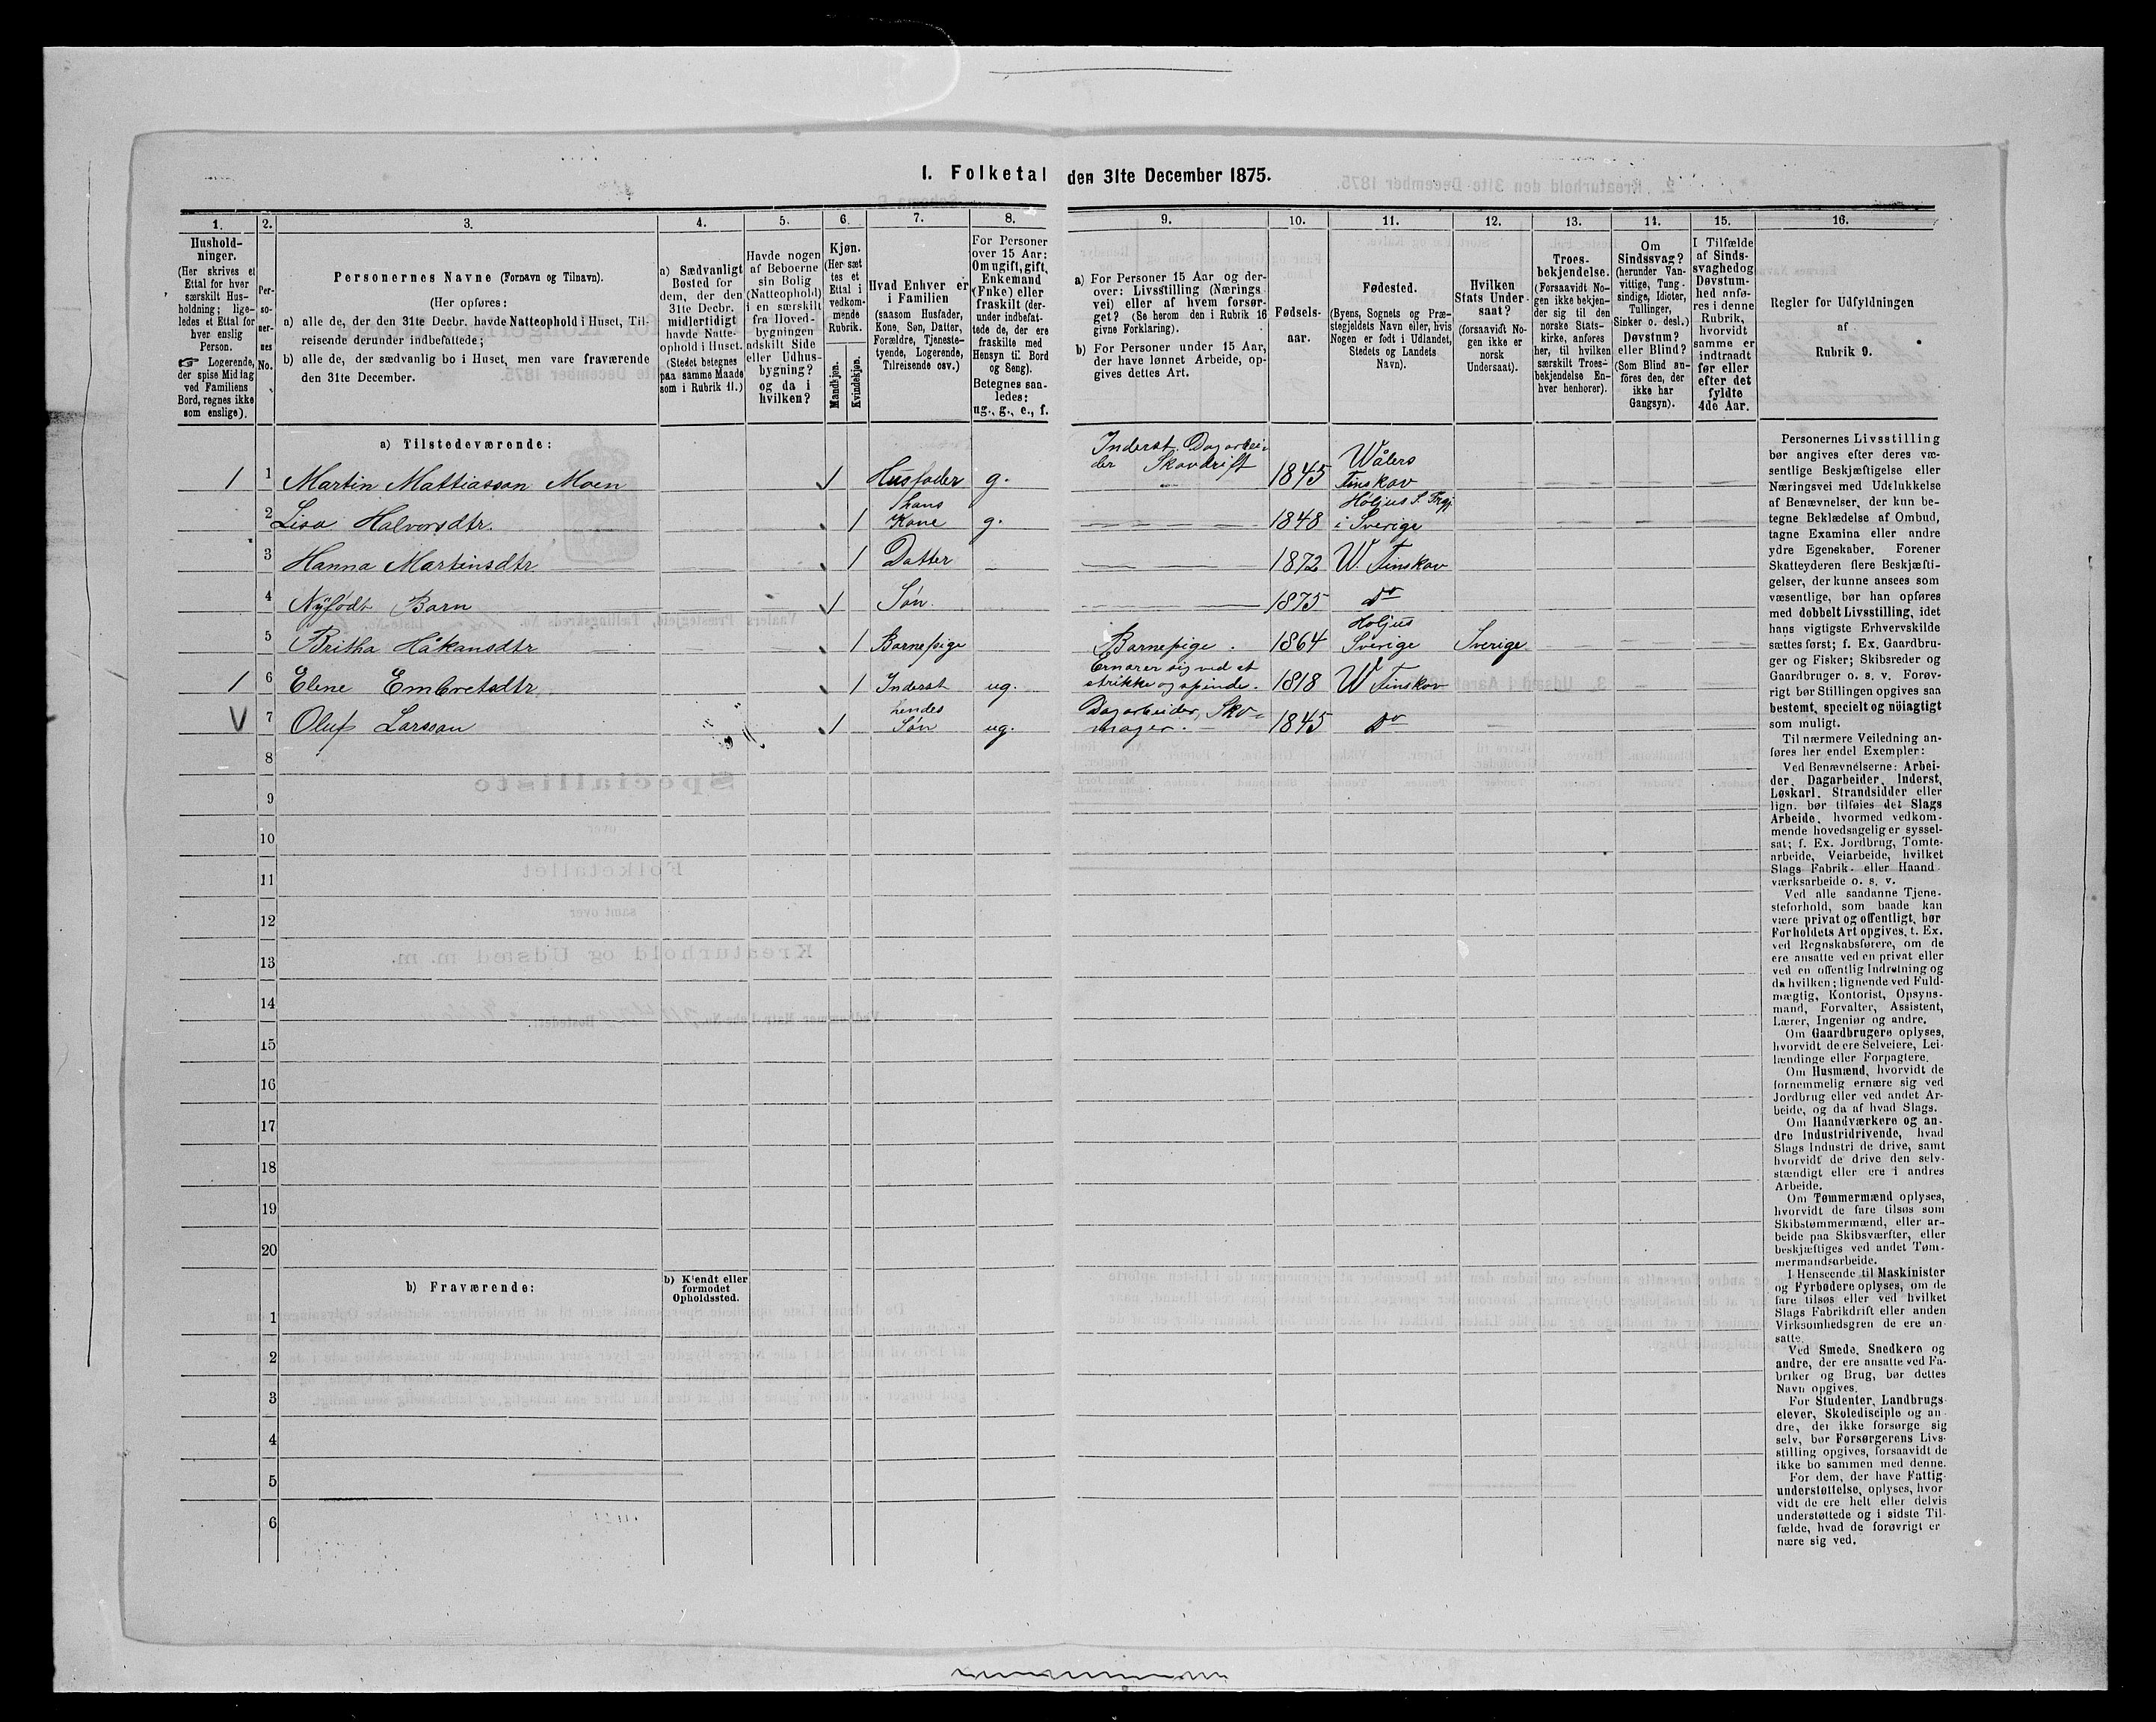 1. Folketal den 31te December 1875.
1. 2. 3. 4. 5. 6. 7. 8. 9. 10. 11. 12. 13. 14. 15. 16.
Hushold-
ninger.
(Her skrives et
Ettal for hver
særskilt Hus-
holdning; lige-
ledes et Ettal for
hver enslig
Person.
☞ Logerende,
der spise Middag
ved Familiens
Bord, regnes ikke
som enslige).
Per-
so-
ner-
nes
No.
Personernes Navne (Fornavn og Tilnavn).
(Her opføres:
a) alle de, der den 31te Decbr. havde Natteophold i Huset, Til-
reisende derunder indbefattede;
b) alle de, der sædvanlig bo i Huset, men vare fraværende
den 31te December.
a) Sædvanligt
Bosted for
dem, der den
31te Decbr.
midlertidigt
havde Natte-
ophold i Huset.
(Stedet betegnes
paa samme Maade
som i Rubrik 11.)
Havde nogen
af Beboerne
sin Bolig
(Natteophold)
i en særskilt
fra Hoved-
bygningen
adskilt Side
eller Udhus-
bygning?
og da i
hvilken?
Kjøn.
(Her sæt
tes et
Ettal i
vedkom-
mende
Rubrik.
Mandkjøn.
Kvindekjøn.
Hvad Enhver er
i Familien
(saasom Husfader,
Kone, Søn, Datter,
Forældre, Tjeneste-
tyende, Logerende,
Tilreisende osv.)
For Personer
over 15 Aar:
Om ugift, gift,
Enkemand
(Enke) eller
fraskilt (der-
under indbefat-
tede de, der ere
fraskilte med
Hensyn til Bord
og Seng).
Betegnes saa-
ledes:
ug., g., e., f.
a) For Personer 15 Aar og der-
over: Livsstilling (Nærings
vei) eller af hvem forsør-
get? (Se herom den i Rubrik 16
givne Forklaring).
b) For Personer under 15 Aar,
der have lønnet Arbeide, op-
gives dettes Art.
Fødsels-
aar.
Fødested.
(Byens, Sognets og Præ-
stegjeldets Navn eller, hvis
Nogen er født i Udlandet,
Stedets og Landets
Navn).
Hvilken
Stats Under-
saat?
(forsaavidt No-
gen ikke er
norsk
Undersaat).
Troes-
bekjendelse.
(Forsaavidt No-
gen ikke bekjen-
der sig til den
norske Stats-
kirke, anføres
her, til hvilken
særskilt Troes-
bekjendelse En-
hver henhører).
Om
Sindssvag?
(herunder Van-
vittige, Tung-
sindige, Idioter,
Tullinger,
Sinker o. desl.)
Døvstum?
eller Blind?
(Som Blind an-
føres den, der
ikke har
Gangsyn).
I Tilfælde
af Sinds-
svaghed og
Døvstum-
hed anfø-
res i denne
Rubrik,
hvorvidt
samme er
indtraadt
før eller
efter det
fyldte
4de Aar.
Regler for Udfyldningen
af
Rubrik 9.
a) Tilstedeværende:
1 1 Martin Mattiasson Moen 1 Husfader g. Inderst. Dagarbei- der Skovdrift 1845 Wålers Finskov
2 Lisa Halvorsdtr. 1 hans Kone g. 1848 i Sverige
3 Hanna Martinsdtr 1 Datter 1872 W. Finskov
4 Nÿfødt Barn 1 Søn. 1875 do
5 Britha Håkansdtr 1 Barnepige Barnepige. 1864 Holjus Sverige Sverige
1 6 Elene Embretsdtr 1 Inderst ug. Ernærer sig ved at strikke og spinde. 1818 W Finskov
7 Oluf Larsson 1 hendes Søn ug. Dagarbeider, Sko- mager. 1845 do
8
9
10
11
12
13
14
15
16
17
18
19
20
b) Fraværende:
b) Kjendt eller
formodet
Opholdssted.
1
2
3
4
5
6
Personernes Livsstilling
bør angives efter deres væ-
sentlige Beskjæftigelse eller
Næringsvei med Udelukkelse
af Benævnelser, der kun be-
tegne Beklædelse af Ombud,
tagne Examina eller andre
ydre Egenskaber. Forener
Skatteyderen flere Beskjæfti-
gelser, der kunne ansees som
væsentlige, bør han opføres
med dobbelt Livsstilling, idet
hans vigtigste Erhvervskilde
sættes først; f. Ex. Gaardbru-
ger og Fisker; Skibsreder og
Gaardbruger o. s. v. Forøv-
rigt bør Stillingen opgives saa
bestemt, specielt og nöiagtigt
som muligt.
Til nærmere Veiledning an-
føres her endel Exempler:
Ved Benævnelserne: Arbei-
der, Dagarbeider, Inderst,
Løskarl, Strandsidder eller
lign. bør tilføies det Slags
Arbeide, hvormed vedkom-
mende hovedsagelig er syssel-
sat; f. Ex. Jordbrug, Tomte-
arbeide, Veiarbeide, hvilket
Slags Fabrik- eller Haand-
værksarbeide o. s. v.
Ved alle saadanne Tjene-
steforhold, som baade kan
være privat og offentligt, bør
Forholdets Art opgives, t. Ex.
ved Regnskabsførere, om de
ere ansatte ved en privat eller
ved en offentlig Indretning og
da hvilken; lignende ved Fuld-
mægtig, Kontorist, Opsyns-
mand, Forvalter, Assistent,
Lærer, Ingeniør og andre.
Om Gaardbrugere oplyses,
hvorvidt de ere Selveiere, Lei-
lændinge eller Forpagtere.
Om Husmænd, hvorvidt de
fornemmelig ernære sig ved
Jordbrug eller ved andet Ar-
beide, og da af hvad Slags.
Om Haandværkere og an-
dre Industridrivende, hvad
Slags Industri de drive, samt
hvorvidt de drive den selv-
stændigt eller ere i andres
Arbeide.
Om Tømmermænd oplyses,
hvorvidt de fare tilsøs som
Skibstømmermænd, eller ar-
beide paa Skibsværfter, eller
beskjæftiges ved andet Tøm-
mermandsarbeide.
I Henseende til Maskinister
og Fyrbødere oplyses, om de
fare tilsøs eller ved hvilket
Slags Fabrikdrift eller anden
Virksomhedsgren de ere an-
satte.
Ved Smede, Snedkere og
andre, der ere ansatte ved Fa-
briker og Brug, bør dettes
Navn opgives.
For Studenter, Landbrugs-
elever, Skoledisciple og an-
dre, der ikke forsørge sig
selv, bør Forsørgerens Livs-
stilling opgives, forsaavidt de
ikke bo sammen med denne.
For dem, der have Fattig-
understøttelse, oplyses, hvor
vidt de ere helt eller delvis
understøttede og i sidste Til-
fælde, hvad de forøvrigt er
nære sig ved.